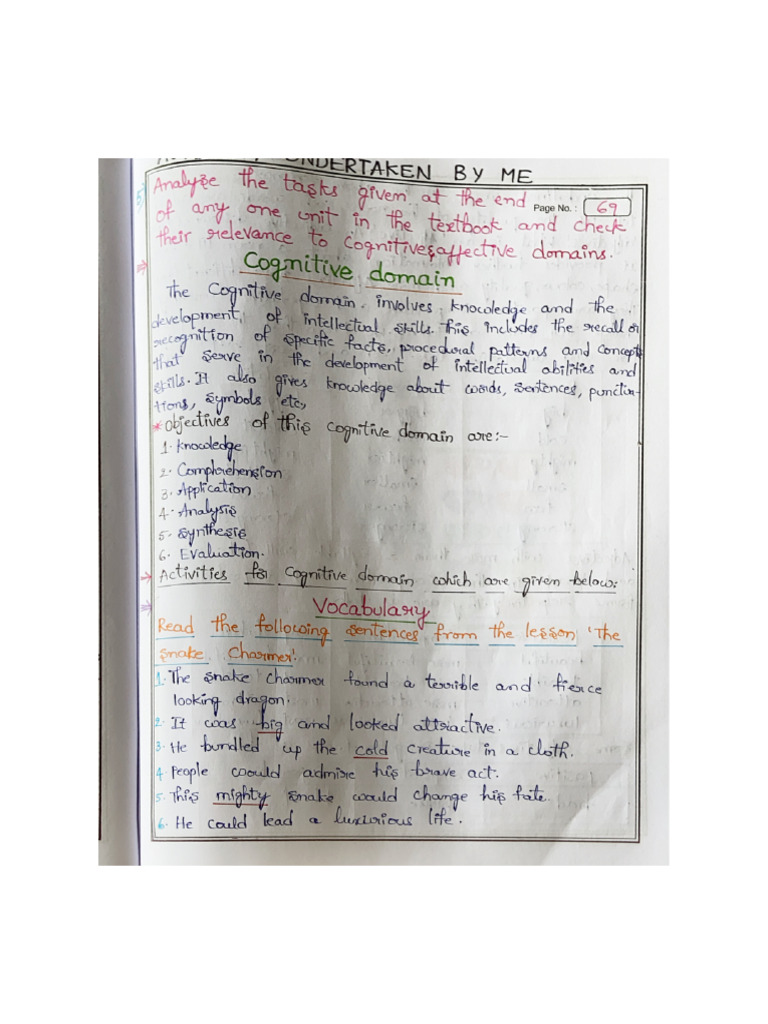 UNDERTAKEN BY ME
5) Analyze the tasks given at the end
Page No. : 69
of any one unit in the textbook and check
their relevance to cognitive & affective domains.
⇒ Cognitive domain
The Cognitive domain involves knowledge and the
development of intellectual skills. This includes the recall or
recognition of specific facts, procedural patterns and concepts
that serve in the development of intellectual abilities and
skills. It also gives knowledge about words, sentences, punctua-
tions, symbols etc,
* Objectives of this cognitive domain are:-
1. Knowledge
2. Comprehension
3. Application
4. Analysis
5. Synthesis
6. Evaluation.
→ Activities for Cognitive domain which are given below:
⇒ Vocabulary
Read the following sentences from the lesson 'The
Snake Charmer'.
1. The snake charmer found a terrible and fierce
looking dragon.
2. It was big and looked attractive.
3. He bundled up the cold creature in a cloth.
4. People would admire his brave act.
5. This mighty snake would change his fate
6. He could lead a luxurious life.